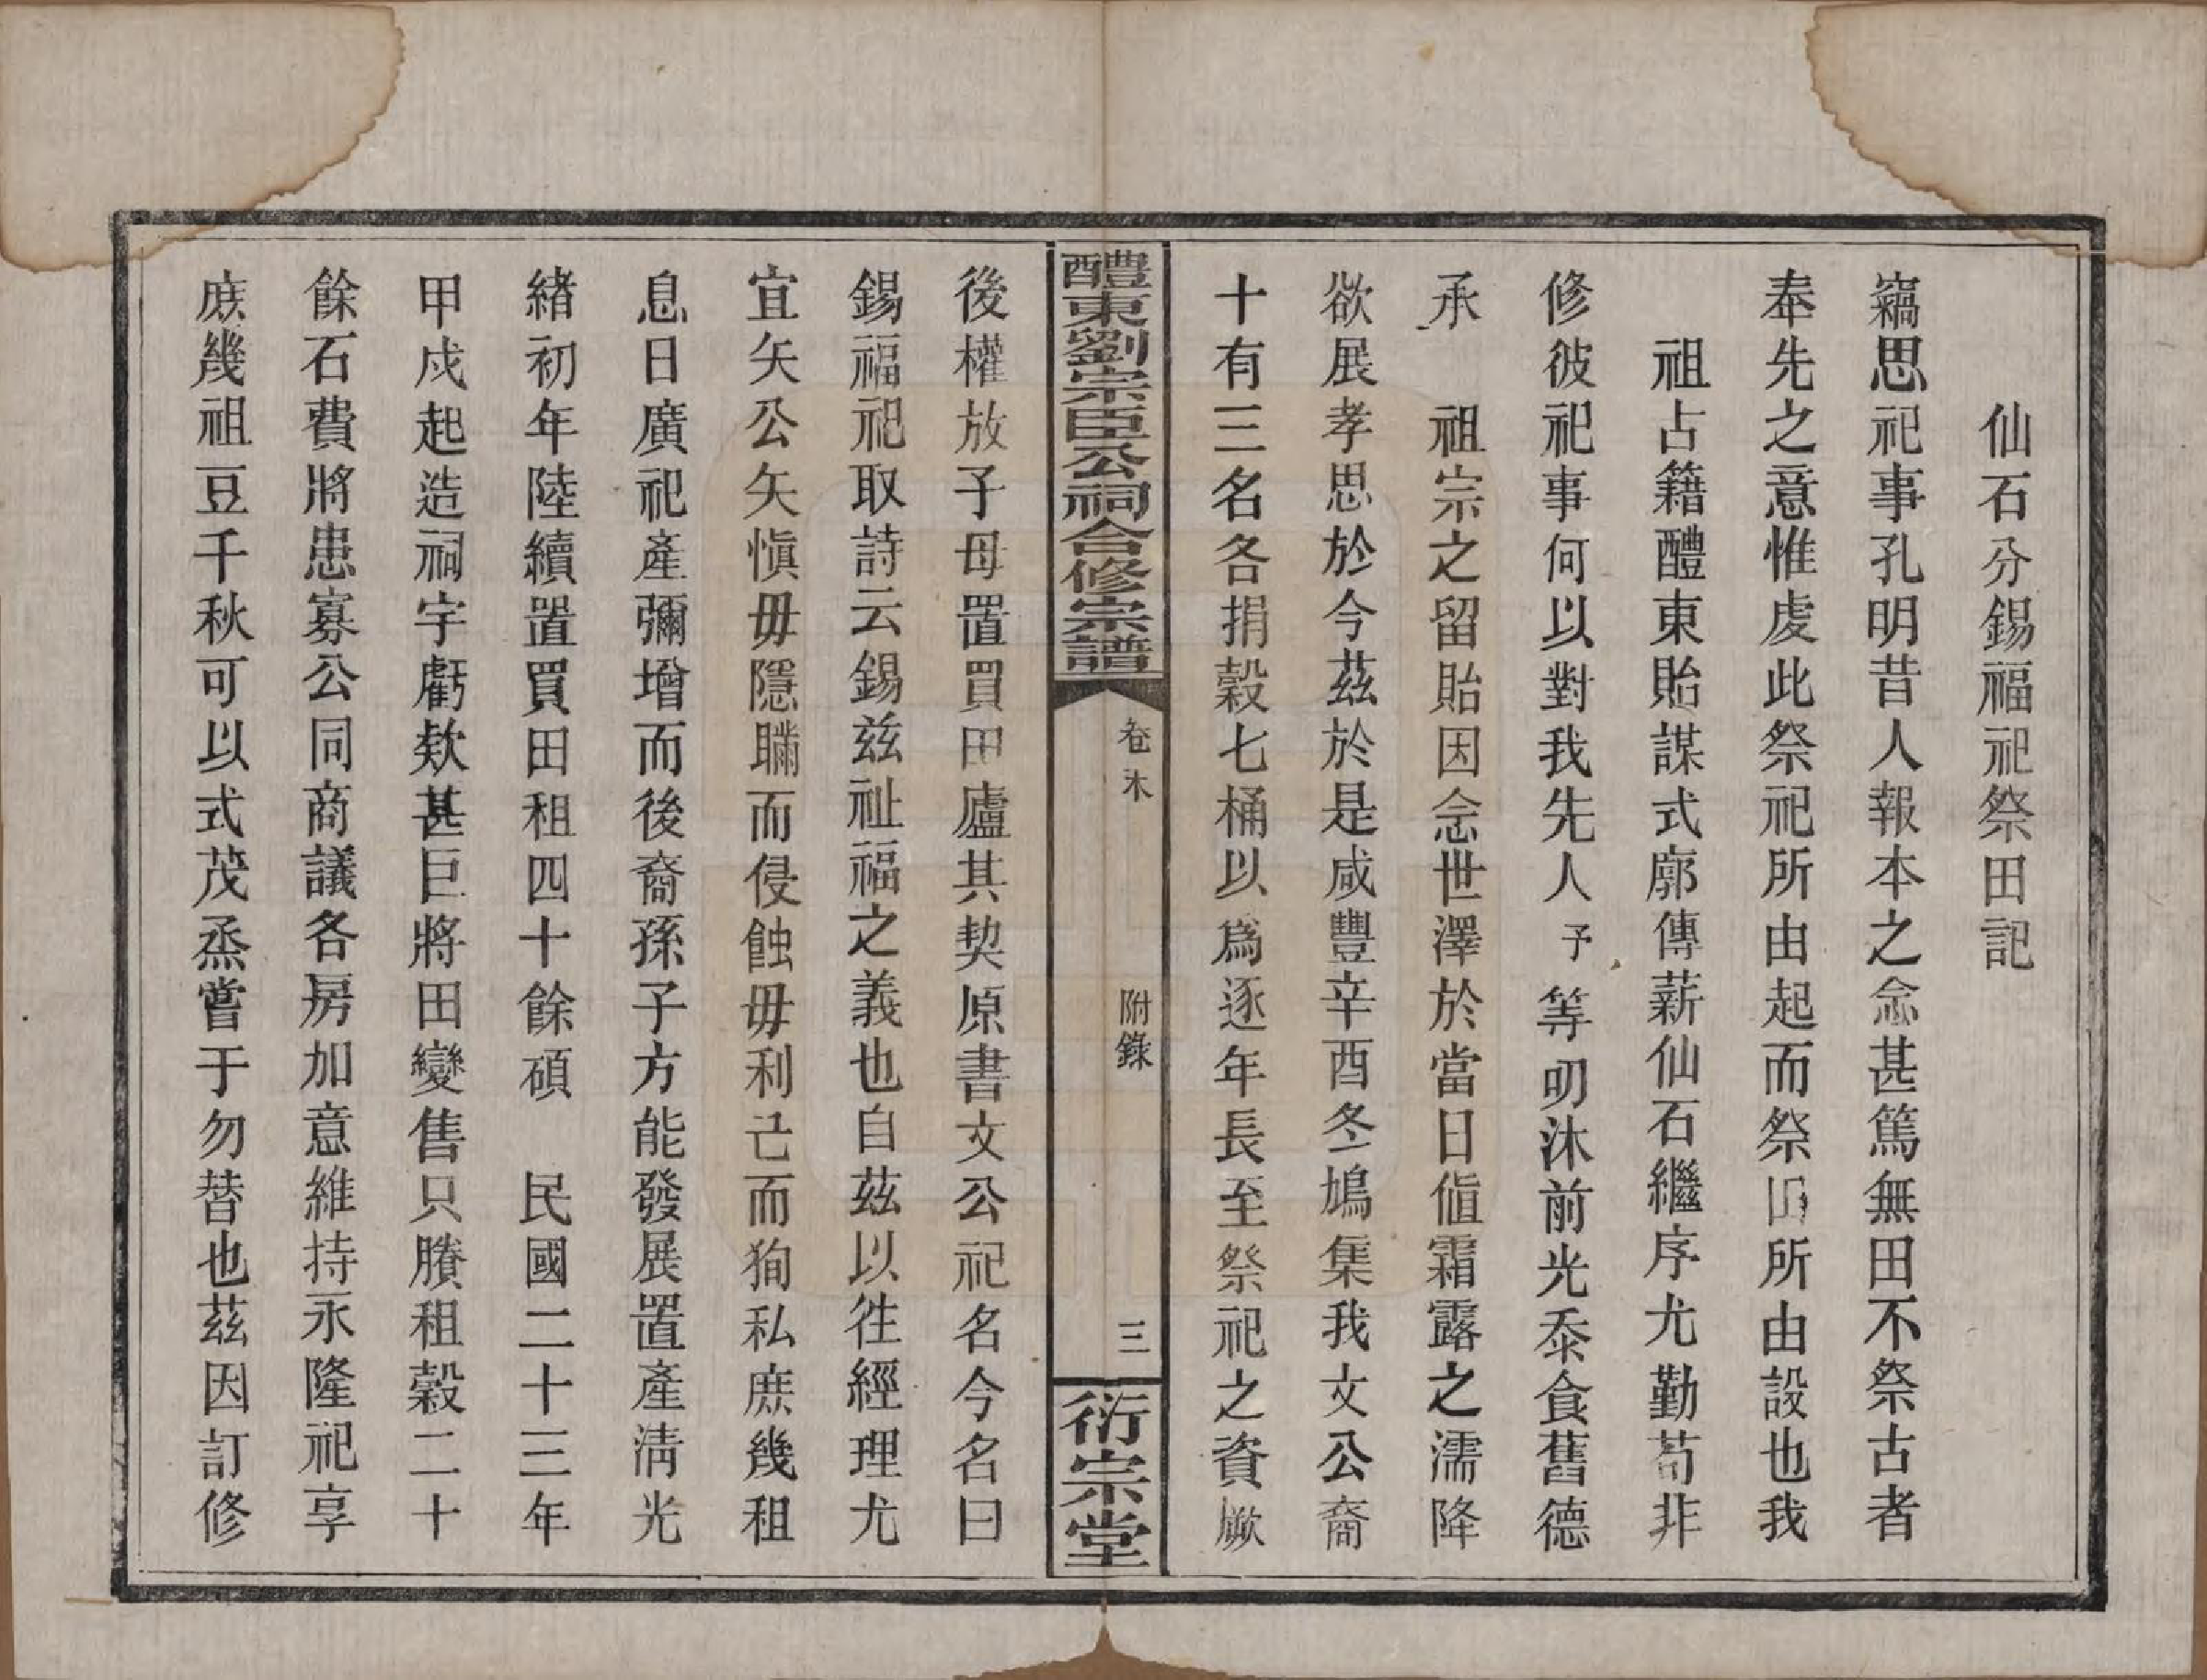 仙石分錫福祀祭田記
竊思祀事孔明昔人報本之念甚篤無田不祭古者
奉先之意惟虔此祭祀所由起而祭田所由設也我
祖占籍醴東貽謀式廓傳薪仙石繼序尤勤苟非
修彼祀事何以對我先人予等叨沐前光忝食舊德
承　祖宗之留貽因念世澤於當日値霜露之濡降
欲展孝思於今茲於是咸豐辛酉冬鳩集我文公裔
十有三名各捐穀七桶以爲逐年長至祭祀之資厥
醴東劉宗臣公祠合修宗譜　卷末　附錄　三　衍宗堂
後權放子母置買田廬其契原書文公祀名今名曰
錫福祀取詩云錫兹祉福之義也自茲以徃經理尤
宜矢公矢愼毋隱瞞而侵蝕毋利己而狥私庶幾租
息日廣祀產彌增而後裔孫子方能發展置產淸光
緖初年陸續置買田租四十餘碩　民國二十三年
甲戍起造祠宇虧欵甚巨將田變售只賸租穀二十
餘石費將患寡公同商議各房加意維持永隆祀享
庻幾祖豆千秋可以式茂烝嘗于勿替也茲因訂修